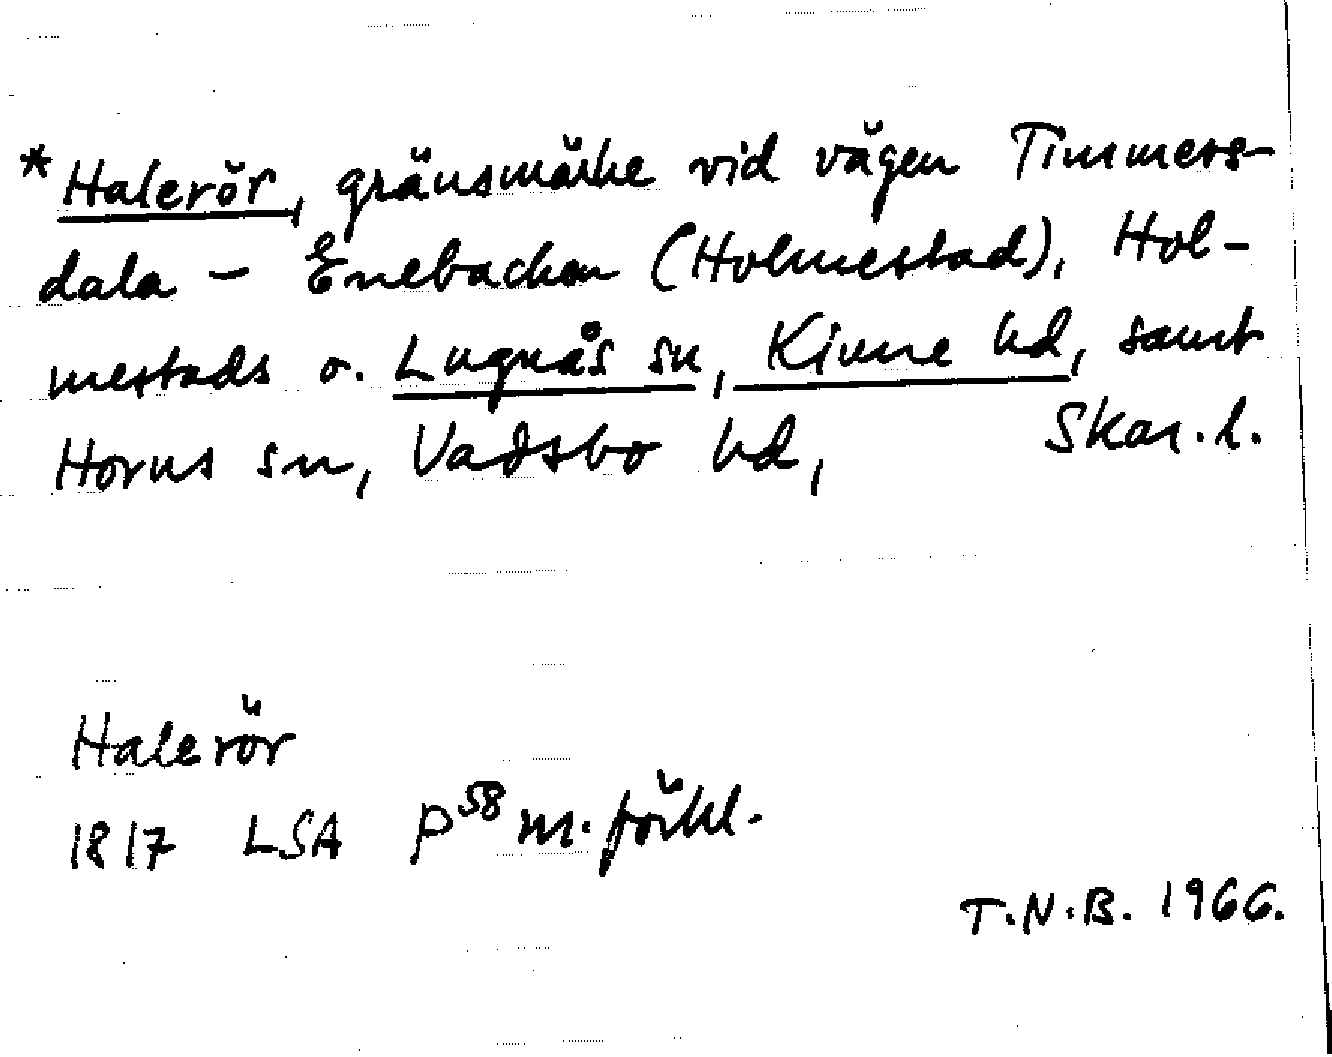 *Halerör, gränsmärke vid vägen Timmers-
dala - Enebacken (Holmestad), Hol-
mestads o. Lugnås sn, Kinne hd, samt
Horns sn, Vadsbo hd, Skar. l.
Halerör
1817 LSA P58 m. förkl.
T.N.B. 1966.